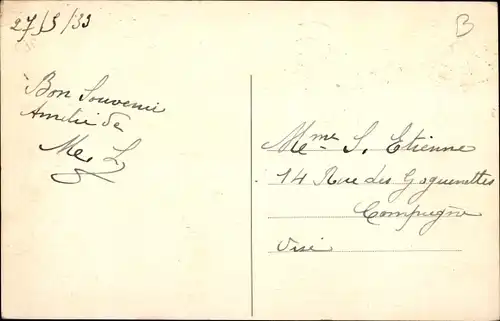 27/5/33
B
Bon Souvenir
Amitié de
Me. L
Mme S. Etienne
14 Rue des Goguenettes
Compiègne
Visé